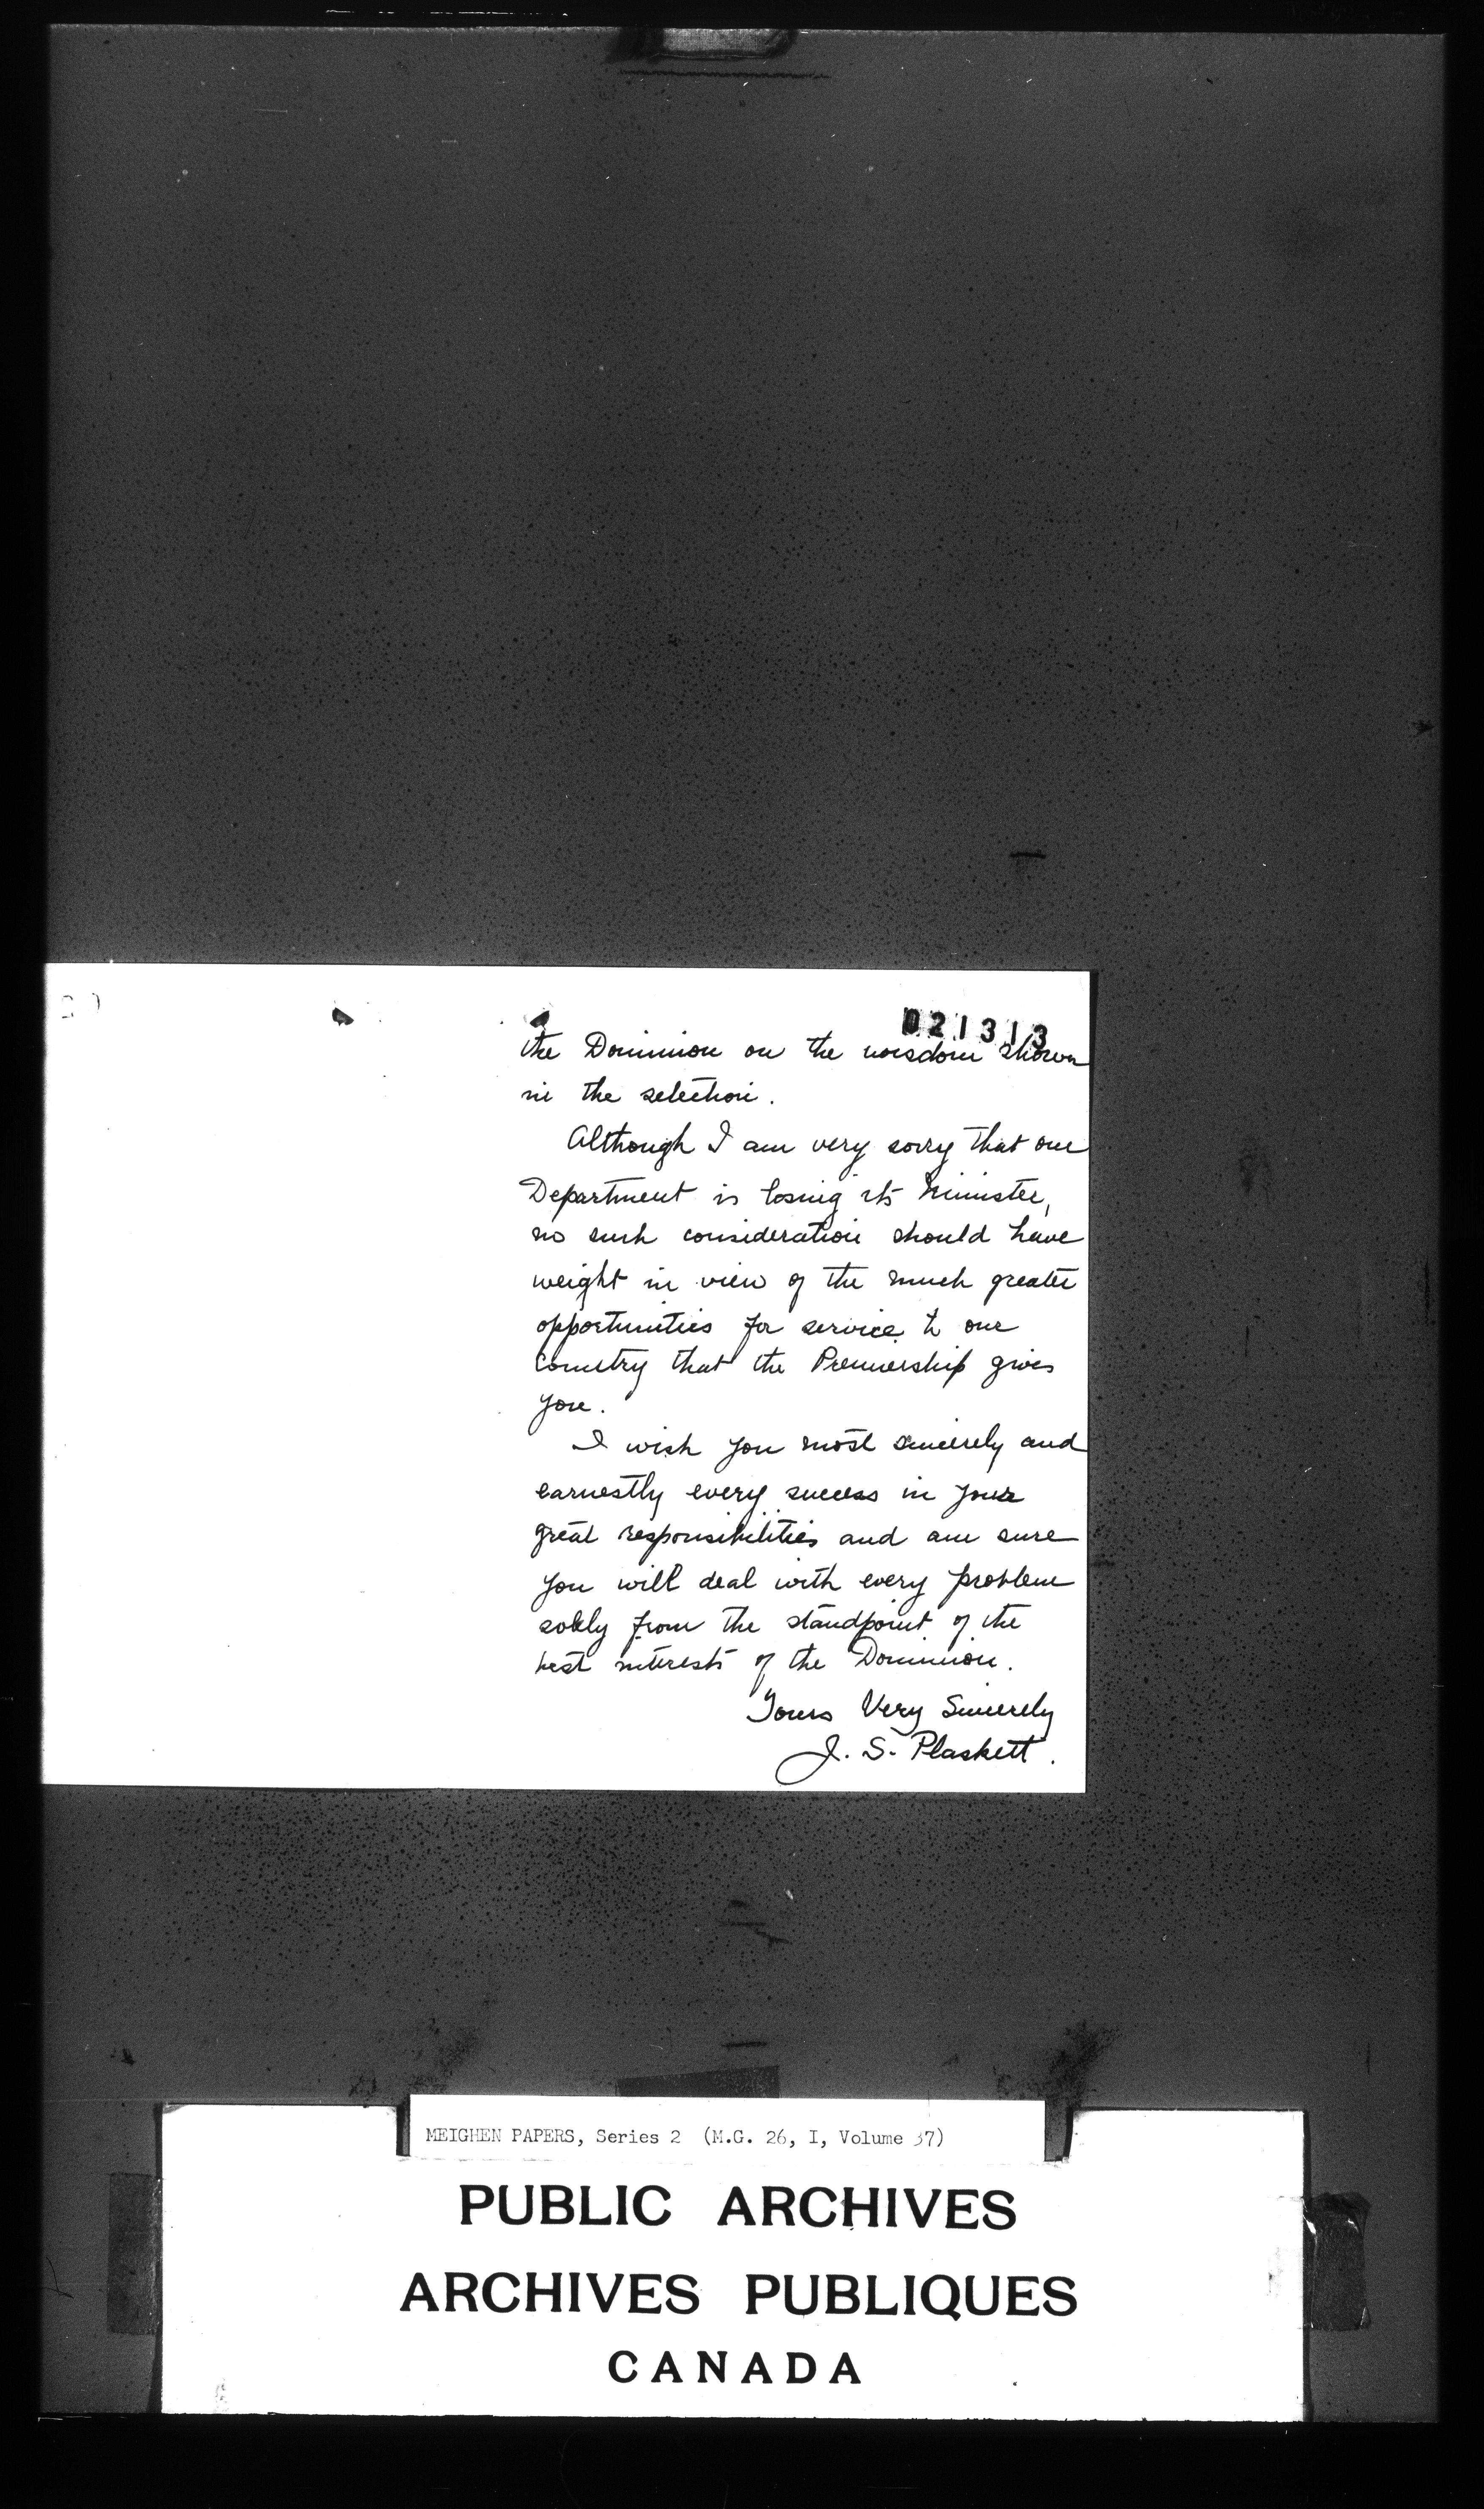 021313
the Dominion on the wisdom shown
in the selection.
Although I am very sorry that our
Department is losing its Minister,
no such consideration should have
weight in view of the much greater
opportunities for service to our
Country that the Premiership gives
you.
I wish you most sincerely and
earnestly every success in your
great responsibilities and am sure
you will deal with every problem
solely from the standpoint of the
best interests of the Dominion.
Yours Very Sincerely
J. S. Plaskett.
MEIGHEN PAPERS, Series 2 (M.G. 26, I, Volume 37)
PUBLIC ARCHIVES
ARCHIVES PUBLIQUES
CANADA